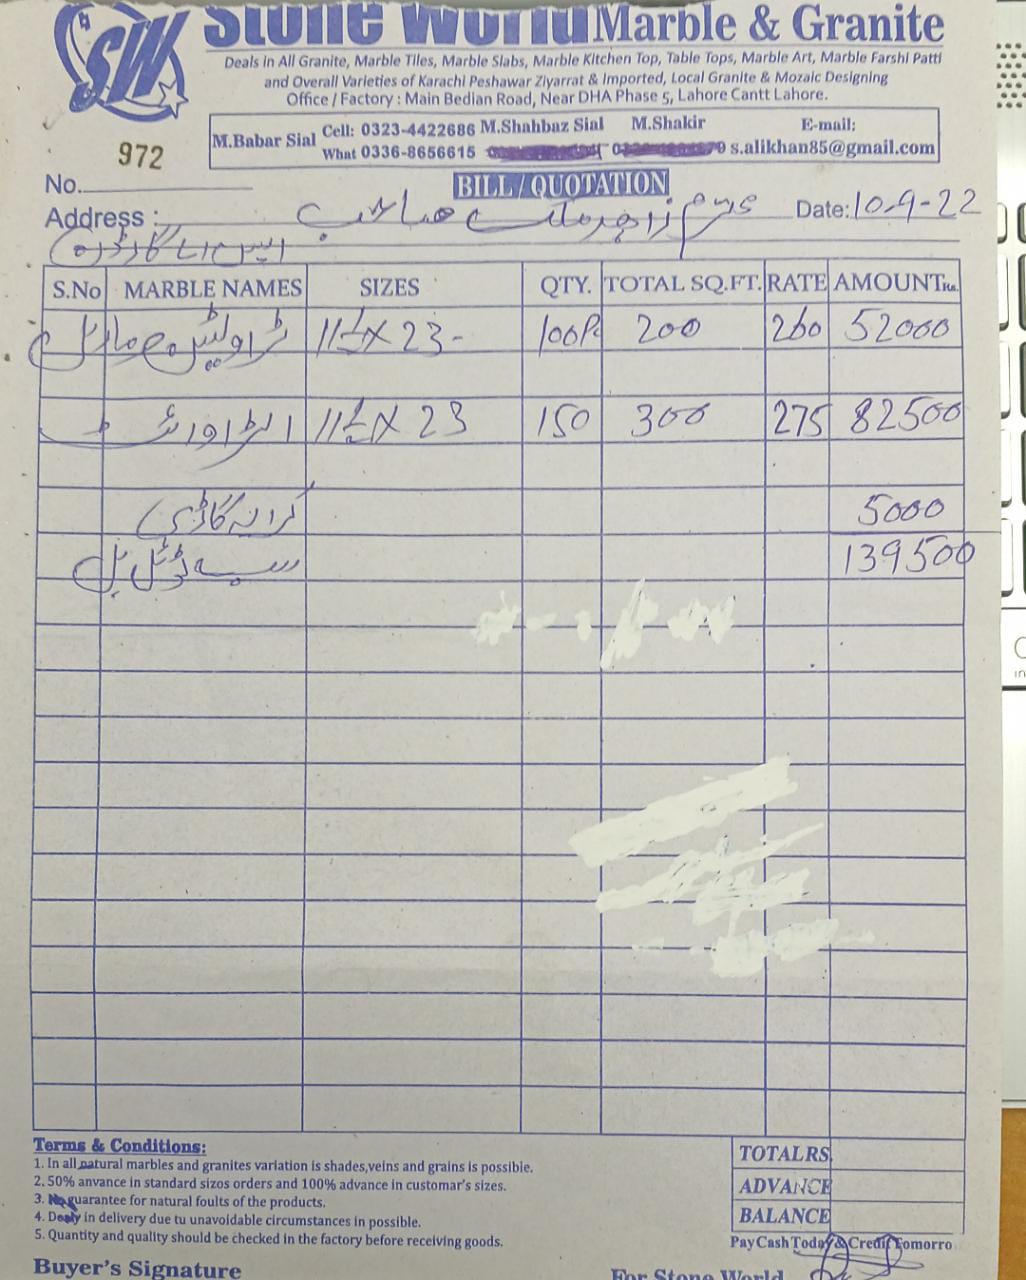 SW
Stone World Marble & Granite
Deals in All Granite, Marble Tiles, Marble Slabs, Marble Kitchen Top, Table Tops, Marble Art, Marble Farshi Patti
and Overall Varieties of Karachi Peshawar Ziyarrat & Imported, Local Granite & Mozaic Designing
Office / Factory : Main Bedian Road, Near DHA Phase 5, Lahore Cantt Lahore.
M.Babar Sial Cell: 0323-4422686 M.Shahbaz Sial M.Shakir E-mail:
What 0336-8656615 s.alikhan85@gmail.com
972
No.
BILL / QUOTATION
Address : صاحب Date: 10-9-22
ایس اے گارڈن
S.No MARBLE NAMES SIZES QTY. TOTAL SQ.FT. RATE AMOUNT Rs.
11½ x 23 - 100Pc 200 260 52000
11½ x 23 150 300 275 82500
کرایہ گاڑی 5000
ٹوٹل بل 139500
Terms & Conditions:
1. In all natural marbles and granites variation is shades,veins and grains is possible.
2. 50% anvance in standard sizos orders and 100% advance in customar's sizes.
3. No guarantee for natural foults of the products.
4. Dealy in delivery due tu unavoidable circumstances in possible.
5. Quantity and quality should be checked in the factory before receiving goods.
TOTAL RS.
ADVANCE
BALANCE
Pay Cash Today & Credit Tomorro
Buyer's Signature
For Stone World